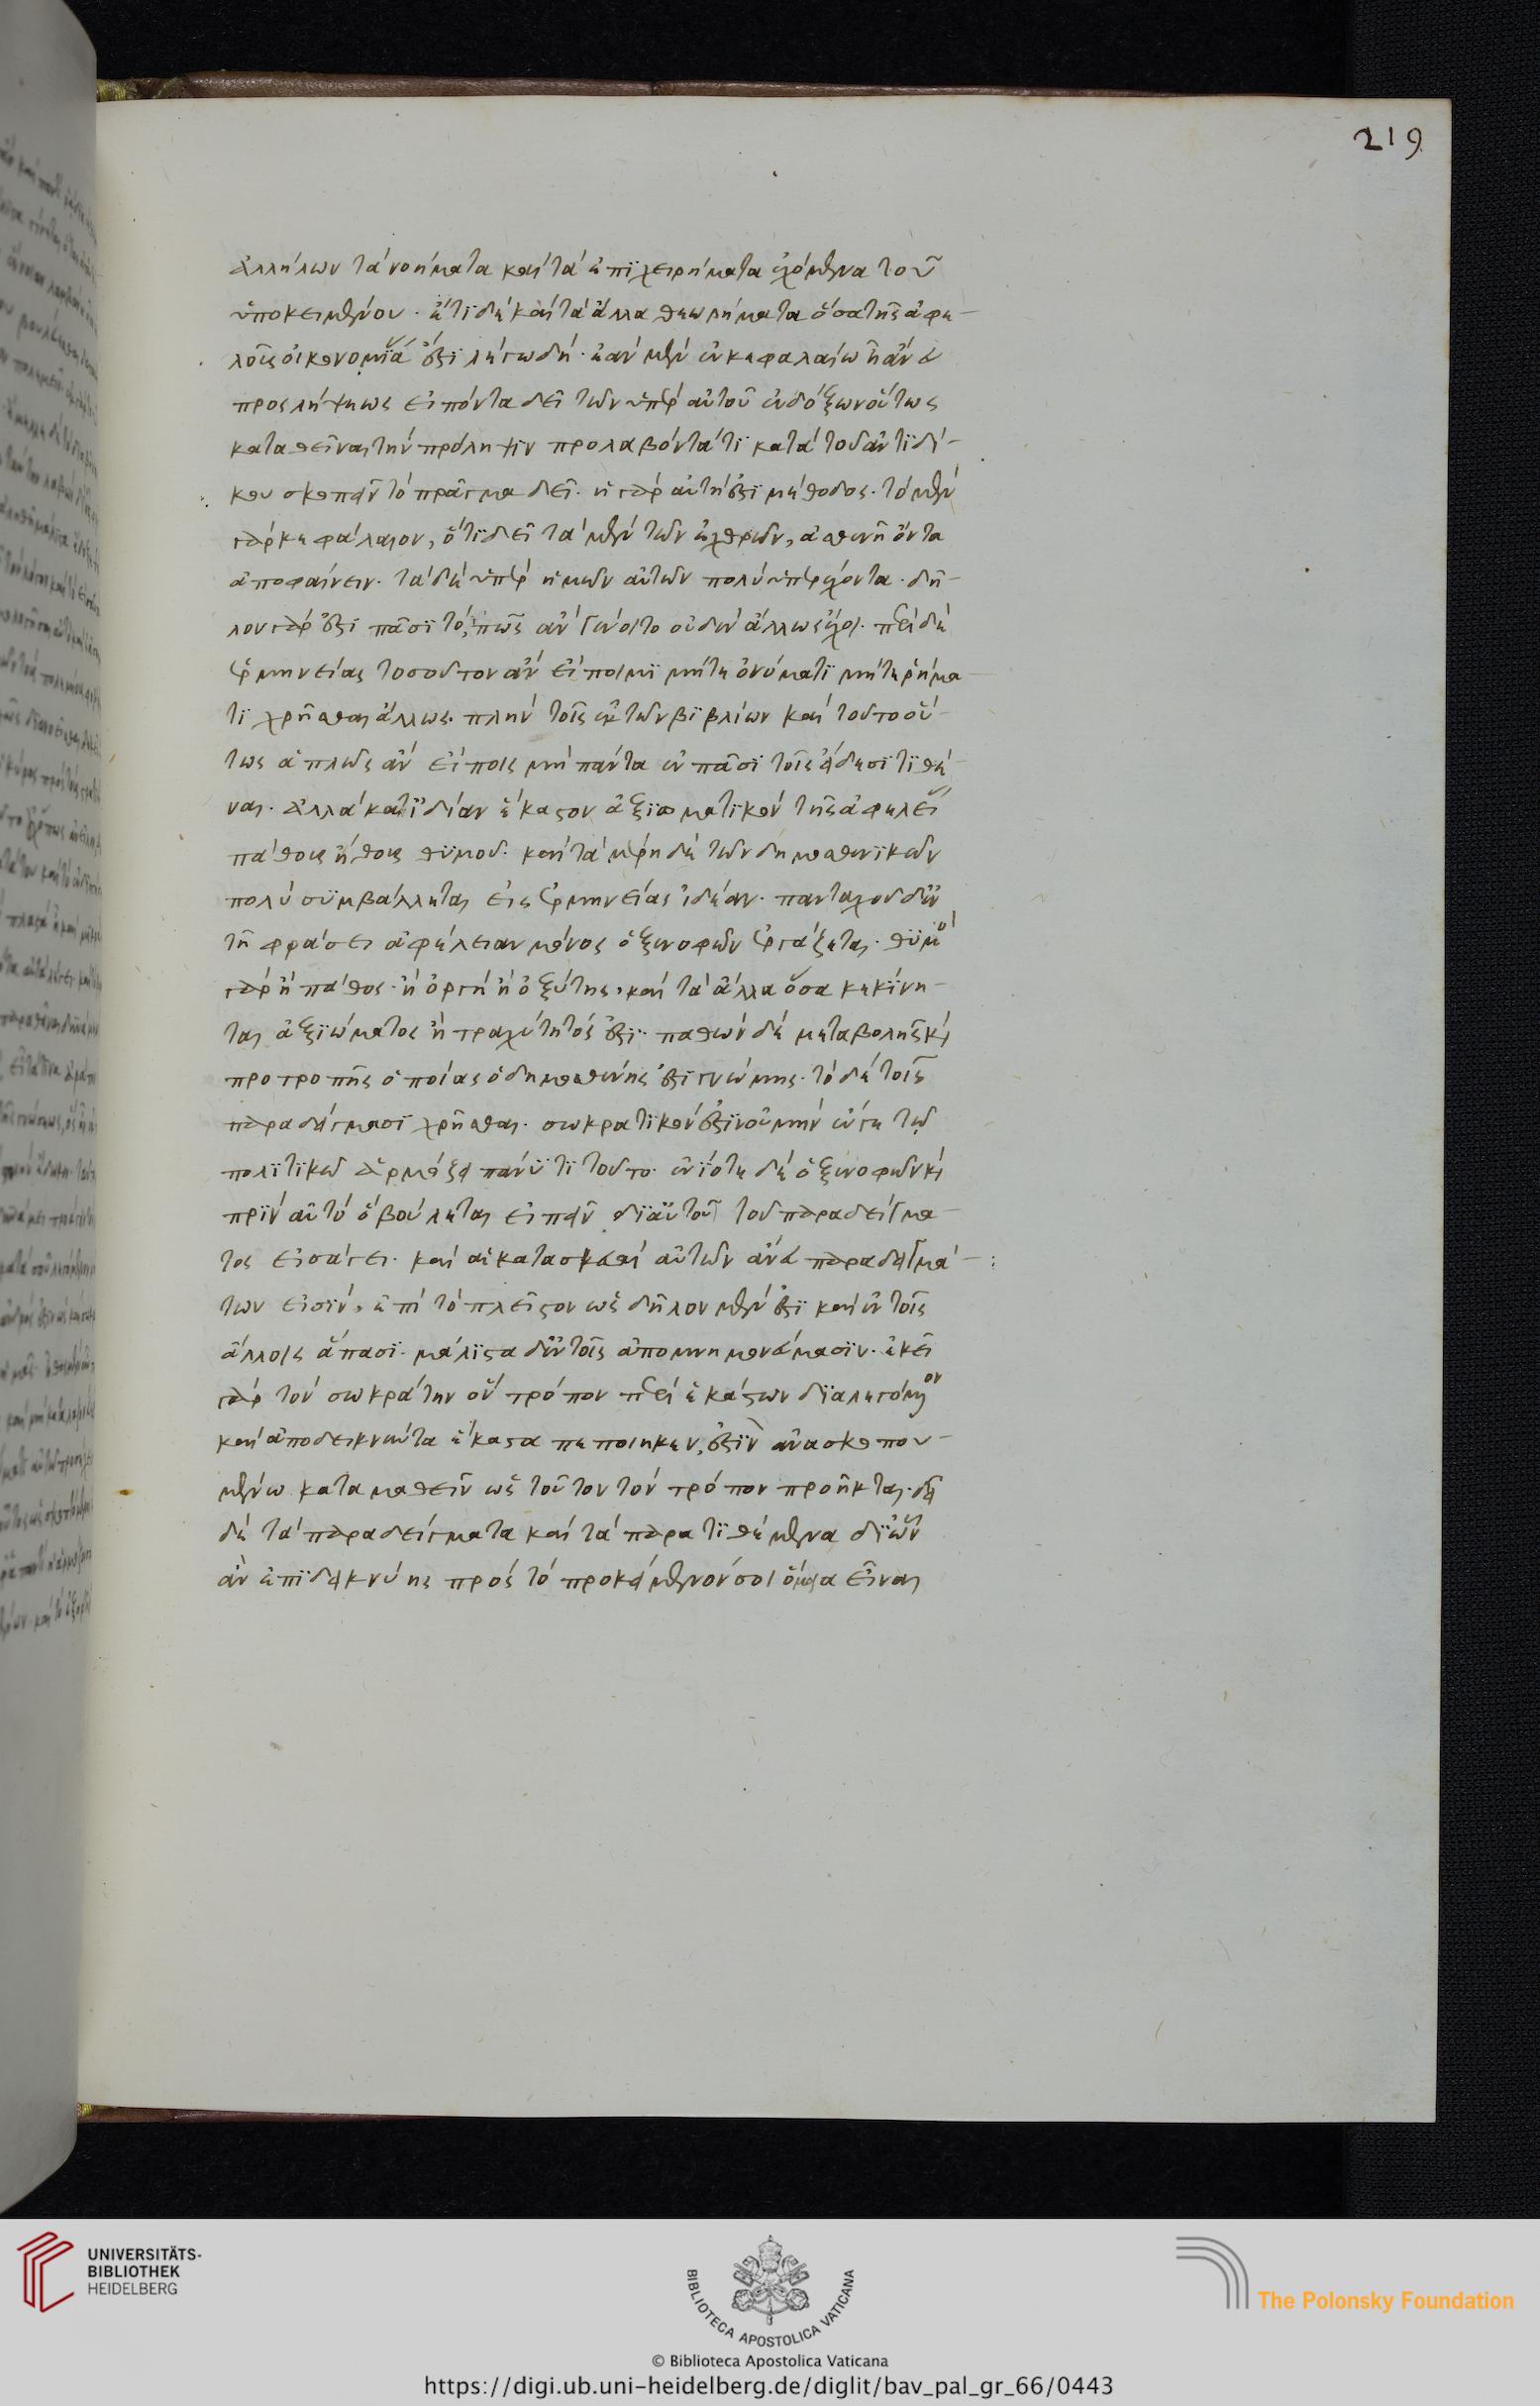 219
ἀλλήλων τὰ νοήματα καὶ τὰ ἐπϊχειρήματα ἐχόμενα τοῦ
ὑποκειμένου. ἔτϊ δὲ καὶ τὰ ἄλλα θεωρήματα ὅσα τῆς ἀφε-
λοῦς οἰκονομϊά ἐστϊ λέγω δή. ἐὰν μὲν ἐν κεφαλαίω ἢ ἄνευ
προσλήψεως εἰπόντα δεῖ τῶν ὑπὲρ αὐτοῦ ἐνδόξων οὕτως
καταθεῖναι τὴν πρόληψιν προλαβόντα τϊ κατὰ τοῦ ἀντϊδί-
κου σκοπεῖν τὸ πρᾶγμα δεῖ. ἡ γὰρ αὐτή ἐστϊ μέθοδος. τὸ μὲν
γὰρ κεφάλαιον, ὅτϊ δεῖ τὰ μὲν τῶν ἐχθρῶν, ἀσθενῆ ὄντα
ἀποφαίνειν. τὰ δὲ ὑπὲρ ἡμῶν αὐτῶν πολὺ ὑπερέχοντα. δῆ-
λον γάρ ἐστϊ πᾶσϊ τὸ, πῶς ἂν γένοιτο οὐδὲν ἄλλως ἔχοι. περὶ δὲ
ἑρμηνείας τοσοῦτον ἂν εἴποιμϊ μήτε ὀνόματϊ μήτε ῥήμα-
τϊ χρῆσθαι ἄλλως. πλὴν τοῖς ἐκ τῶν βϊβλίων καὶ τοῦτο οὕ-
τως ἁπλῶς ἂν εἴποις μὴ πάντα ἐν πᾶσϊ τοῖς εἴδεσϊ τϊθέ-
ναι. ἀλλὰ κατϊδίαν ἕκαστον ἀξϊωματϊκὸν τῆς ἀφελεί
πάθους ἤθους θϋμοῦ. καὶ τὰ μέρη δὲ τῶν δημοσθενϊκῶν
πολὺ σϋμβάλλεται εἰς ἑρμηνείας ἰδέαν. πανταχοῦ δ' ἐν
τῆ φράσει ἀφέλειαν μόνος ὁ ξενοφῶν ἐργάζεται. θϋμὸ
γὰρ ἢ πάθος. ἢ ὀργὴ ἢ ὀξύτης. καὶ τὰ ἄλλα ὅσα κεκίνη-
ται ἀξϊώματος ἢ τραχύτητός ἐστϊ. παθῶν δὲ μεταβολῆς καὶ
προτροπῆς ὁποίας ὁ δημοσθένης ἐστϊ γνώμης. τὸ δὲ τοῖς
παραδείγμασϊ χρῆσθαι. σωκρατϊκόν ἐστϊν οὐ μὴν ἔν γε τῶ
πολϊτϊκῶ ἁρμόξει πάνϋ τϊ τοῦτο. ἐνΐοτε δὲ ὁ ξενοφῶν καὶ
πρϊν αὐτὸ ὃ βούλεται εἰπεῖν δϊ αὐτοῦ τοῦ παραδείγμα-
τος εἰσάγει. καὶ αἱ κατασκευαὶ αὐτῶν ἄνευ παραδειγμά-
των εἰσϊν, ἐπὶ τὸ πλεῖστον ὡς δῆλον μέν ἐστϊ καὶ ἐν τοῖς
ἄλλοις ἅπασϊ. μάλϊστα δ' ἐν τοῖς ἀπομνημονεύμασϊν. ἐκεῖ
γὰρ τὸν σωκράτην ὃν τρόπον περὶ ἑκάστων δϊαλεγόμενον
καὶ ἀποδεικνύντα ἕκαστα πεποιηκεν, ἐστϊν ἀνασκοπου-
μένω καταμαθεῖν ὡς τοῦτον τὸν τρόπον προῆκται. δεῖ
δὲ τὰ παραδείγματα καὶ τὰ παρατϊθέμενα δϊ ὧν
ἂν ἐπϊδεικνύης πρὸς τὸ προκείμενόν σοι ὅμοια εἶναι
UNIVERSITÄTS-
BIBLIOTHEK
HEIDELBERG
BIBLIOTECA APOSTOLICA VATICANA
© Biblioteca Apostolica Vaticana
The Polonsky Foundation
https://digi.ub.uni-heidelberg.de/diglit/bav_pal_gr_66/0443